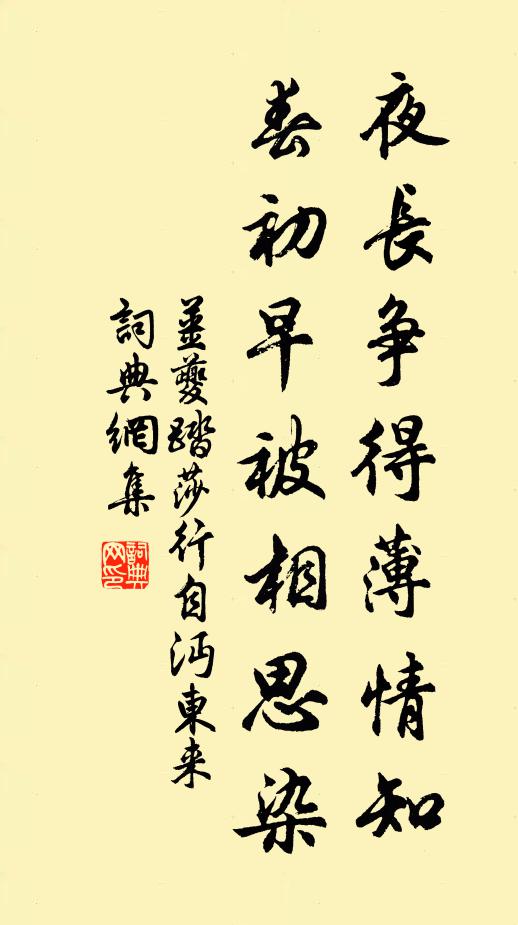 夜長争得薄情知
春初早被相思染
姜夔踏莎行自沔東来
詞典網集
詞典网印